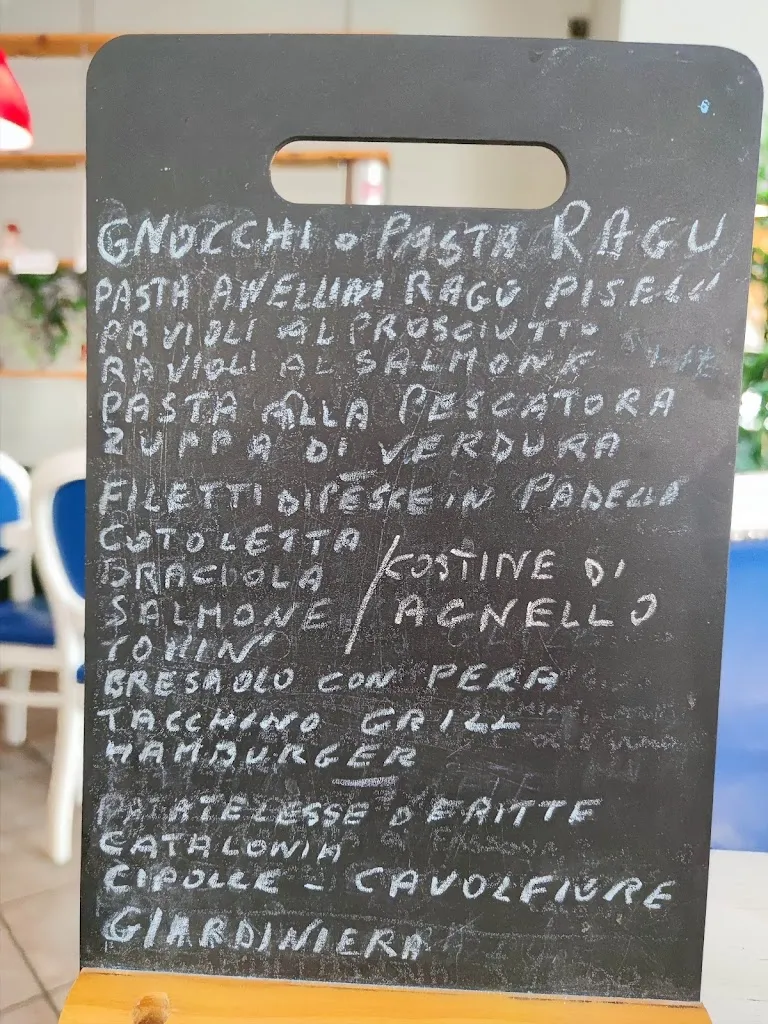 GNOCCHI o PASTA RAGU
PASTA ANELLINI RAGU PISELLI
RAVIOLI AL PROSCIUTTO
RAVIOLI AL SALMONE
PASTA ALLA PESCATORA
ZUPPA DI VERDURA
FILETTI DI PESCE IN PADELLA
COTOLETTA
BRACIOLA / COSTINE DI
SALMONE / AGNELLO
TOMIN'
BRESAOLO CON PERA
TACCHINO GRILL
HAMBURGER
PATATE LESSE o FRITTE
CATALONIA
CIPOLLE - CAVOLFIORE
GIARDINIERA